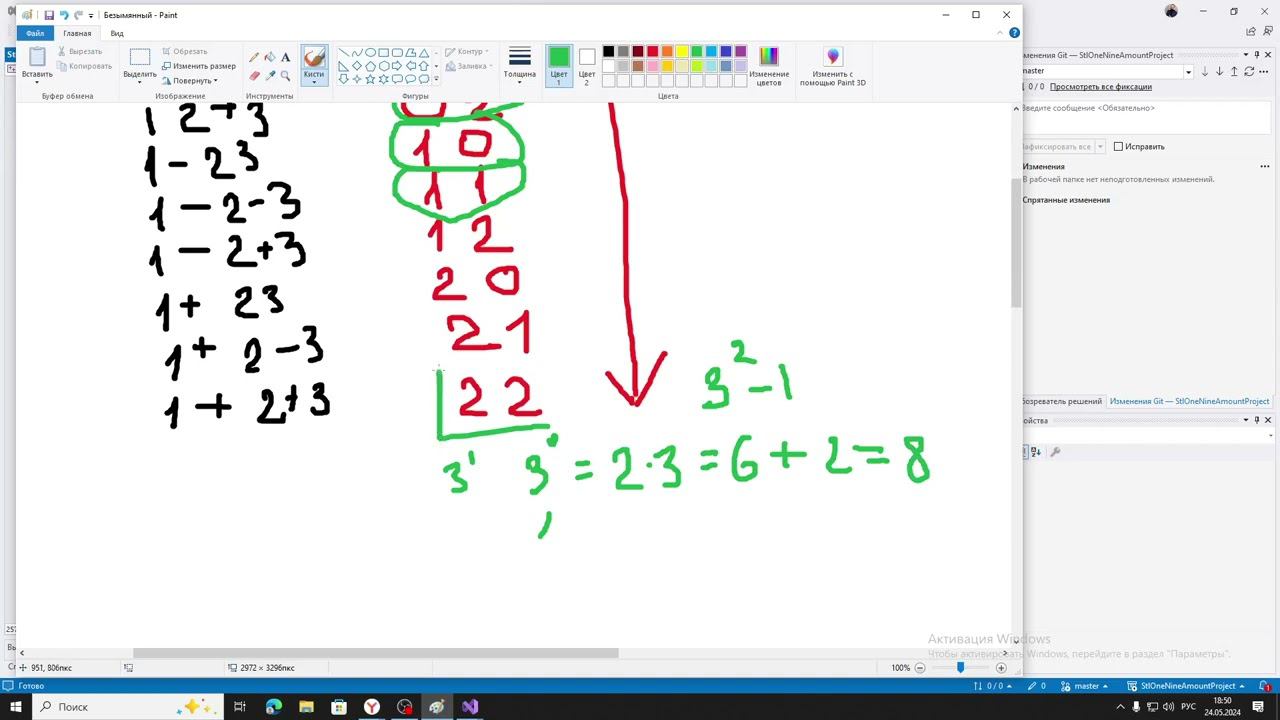 Безымянный - Paint
Файл
Главная
Вид
Вставить
Вырезать
Копировать
Буфер обмена
Выделить
Обрезать
Изменить размер
Повернуть
Изображение
A
Инструменты
Кисти
Контур
Заливка
Фигуры
Толщина
Цвет 1
Цвет 2
Изменение цветов
Цвета
Изменить с помощью Paint 3D
1 2+3
1-23
1-2-3
1-2+3
1+ 23
1+ 2-3
1+ 2+3
1 0
1 1
1 2
2 0
2 1
2 2
3² -1
3¹ 3⁰ = 2·3 = 6 + 2 = 8
951, 806пкс
2972 × 3296пкс
100%
менения Git — StlOneNineAmountProject
master
0 / 0 Просмотреть все фиксации
Введите сообщение <Обязательно>
афиксировать все
Исправить
Изменения
В рабочей папке нет неподготовленных изменений.
Спрятанные изменения
бозреватель решений
Изменения Git — StlOneNineAmountProject
ойства
Активация Windows
Чтобы активировать Windows, перейдите в раздел "Параметры".
Готово
0 / 0
0
master
StlOneNineAmountProject
1
Поиск
РУС
18:50
24.05.2024